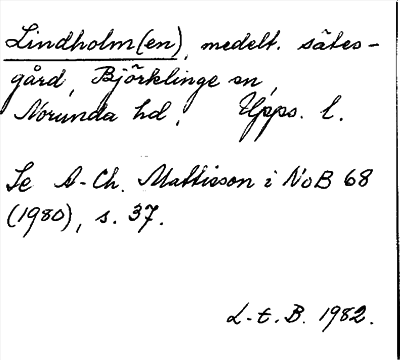 Lindholm(en), medelt. sätes-
gård, Björklinge sn,
Norunda hd, Upps. l.
Se A-Ch. Mattisson i NoB 68
(1980), s. 37.
L-t. B. 1982.